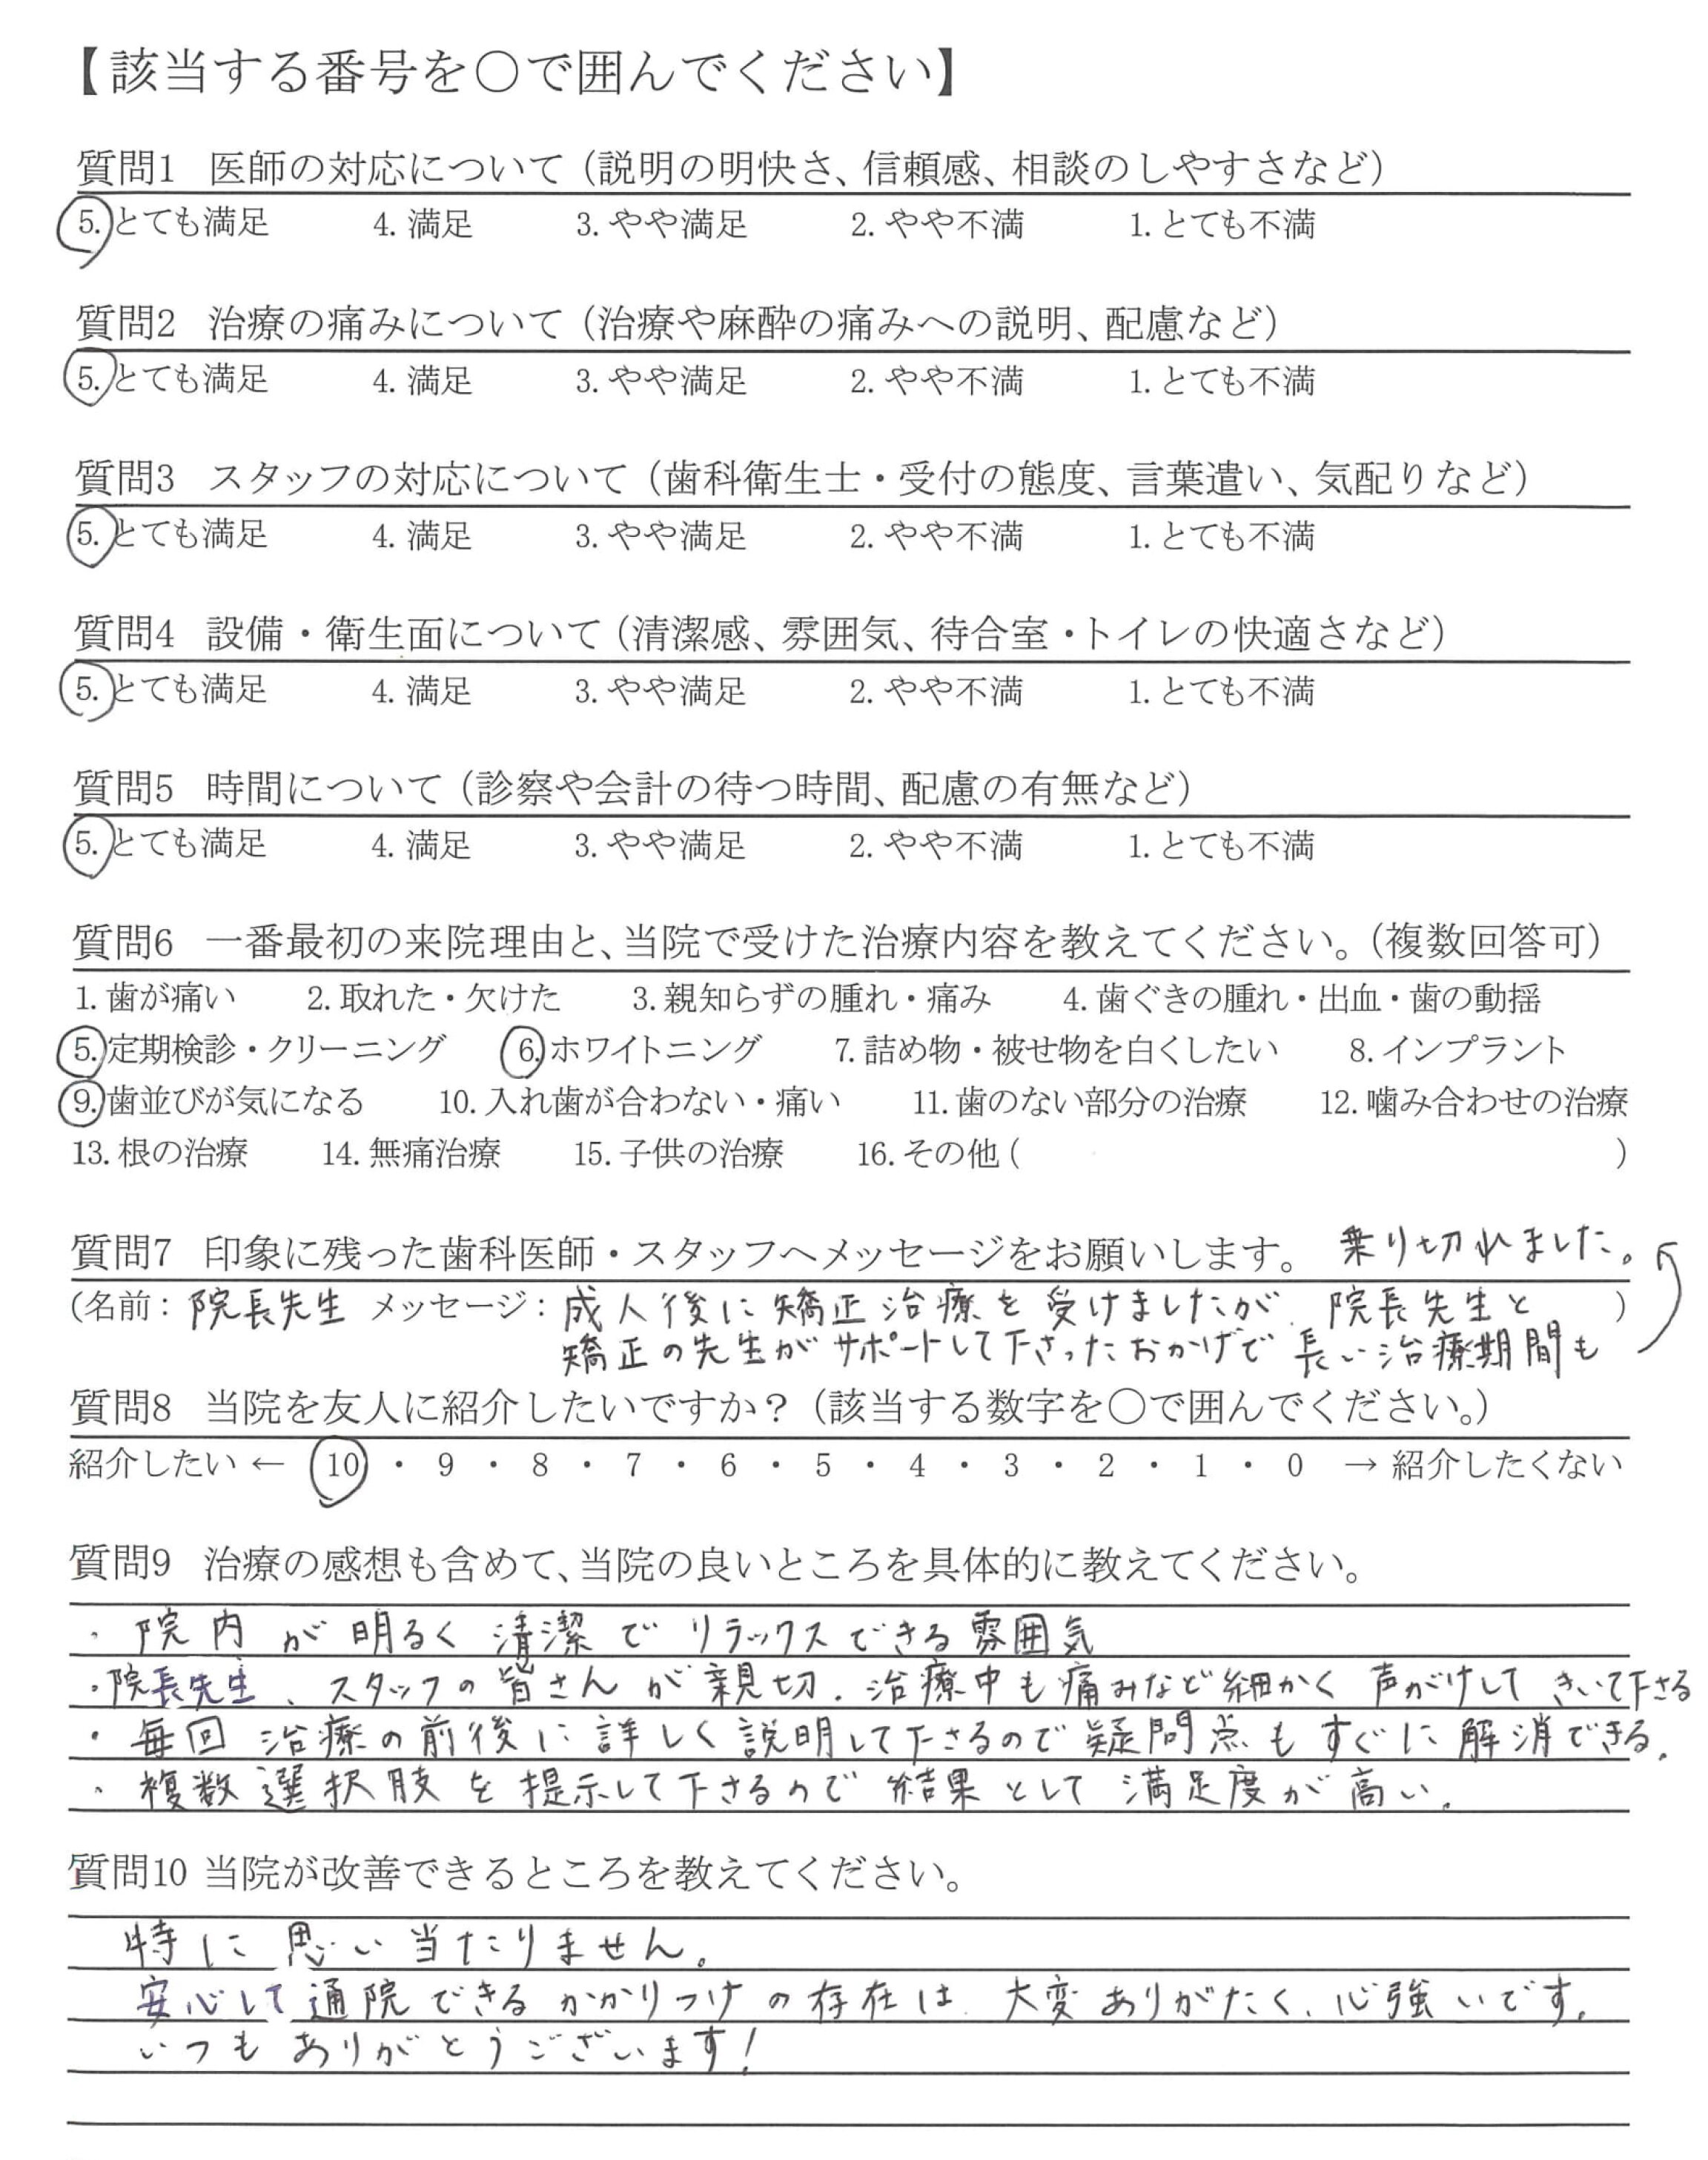 【該当する番号を〇で囲んでください】
質問1 医師の対応について（説明の明快さ、信頼感、相談のしやすさなど）
5. とても満足 4. 満足 3. やや満足 2. やや不満 1. とても不満
質問2 治療の痛みについて（治療や麻酔の痛みへの説明、配慮など）
5. とても満足 4. 満足 3. やや満足 2. やや不満 1. とても不満
質問3 スタッフの対応について（歯科衛生士・受付の態度、言葉遣い、気配りなど）
5. とても満足 4. 満足 3. やや満足 2. やや不満 1. とても不満
質問4 設備・衛生面について（清潔感、雰囲気、待合室・トイレの快適さなど）
5. とても満足 4. 満足 3. やや満足 2. やや不満 1. とても不満
質問5 時間について（診察や会計の待つ時間、配慮の有無など）
5. とても満足 4. 満足 3. やや満足 2. やや不満 1. とても不満
質問6 一番最初の来院理由と、当院で受けた治療内容を教えてください。（複数回答可）
1. 歯が痛い 2. 取れた・欠けた 3. 親知らずの腫れ・痛み 4. 歯ぐきの腫れ・出血・歯の動揺
5. 定期検診・クリーニング 6. ホワイトニング 7. 詰め物・被せ物を白くしたい 8. インプラント
9. 歯並びが気になる 10. 入れ歯が合わない・痛い 11. 歯のない部分の治療 12. 噛み合わせの治療
13. 根の治療 14. 無痛治療 15. 子供の治療 16. その他（ ）
質問7 印象に残った歯科医師・スタッフへメッセージをお願いします。
（名前：院長先生 メッセージ：成人後に矯正治療を受けましたが、院長先生と ）
矯正の先生がサポートして下さったおかげで長い治療期間も
乗り切れました。
質問8 当院を友人に紹介したいですか？（該当する数字を〇で囲んでください。）
紹介したい ← 10 ・ 9 ・ 8 ・ 7 ・ 6 ・ 5 ・ 4 ・ 3 ・ 2 ・ 1 ・ 0 → 紹介したくない
質問9 治療の感想も含めて、当院の良いところを具体的に教えてください。
・院内が明るく清潔でリラックスできる雰囲気
・院長先生、スタッフの皆さんが親切．治療中も痛みなど細かく声がけしてきいて下さる
・毎回治療の前後に詳しく説明して下さるので疑問点もすぐに解消できる．
・複数選択肢を提示して下さるので結果として満足度が高い．
質問10 当院が改善できるところを教えてください。
特に思い当たりません。
安心して通院できるかかりつけの存在は、大変ありがたく、心強いです．
いつもありがとうございます！